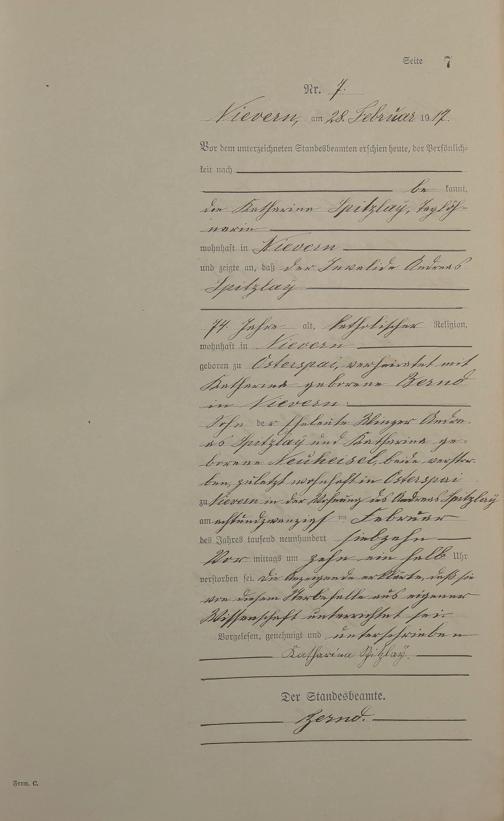 Seite 7
Nr. 7.
Nievern, am 28. Februar 1917.
Vor dem unterzeichneten Standesbeamten erschien heute, der Persönlich-
keit nach
be kannt,
die Katharina Spitzlay, Taglöh-
nerin
wohnhaft in Nievern
und zeigte an, daß der Invalide Andreas
Spitzlay
74 Jahre alt, katholischer Religion,
wohnhaft in Nievern
geboren zu Osterspai, verheiratet mit
Katharina geborene Bernd
in Nievern
Sohn der Eheleute Winzer Andre-
as Spitzlay und Katharina ge-
borene Neuheisel, beide verstor-
ben, zuletzt wohnhaft in Osterspai
zu Nievern in der Wohnung des Andreas Spitzlay
am achtundzwanzigst en Februar
des Jahres tausend neunhundert siebzehn
Vor mittags um zehn ein halb Uhr
verstorben sei. Die Anzeigende erklärte, daß sie
von diesem Sterbefalle aus eigener
Wissenschaft unterrichtet sei.
Vorgelesen, genehmigt und unterschrieben
Katharina Spitzlay.
Der Standesbeamte.
Bernd.
Form. C.